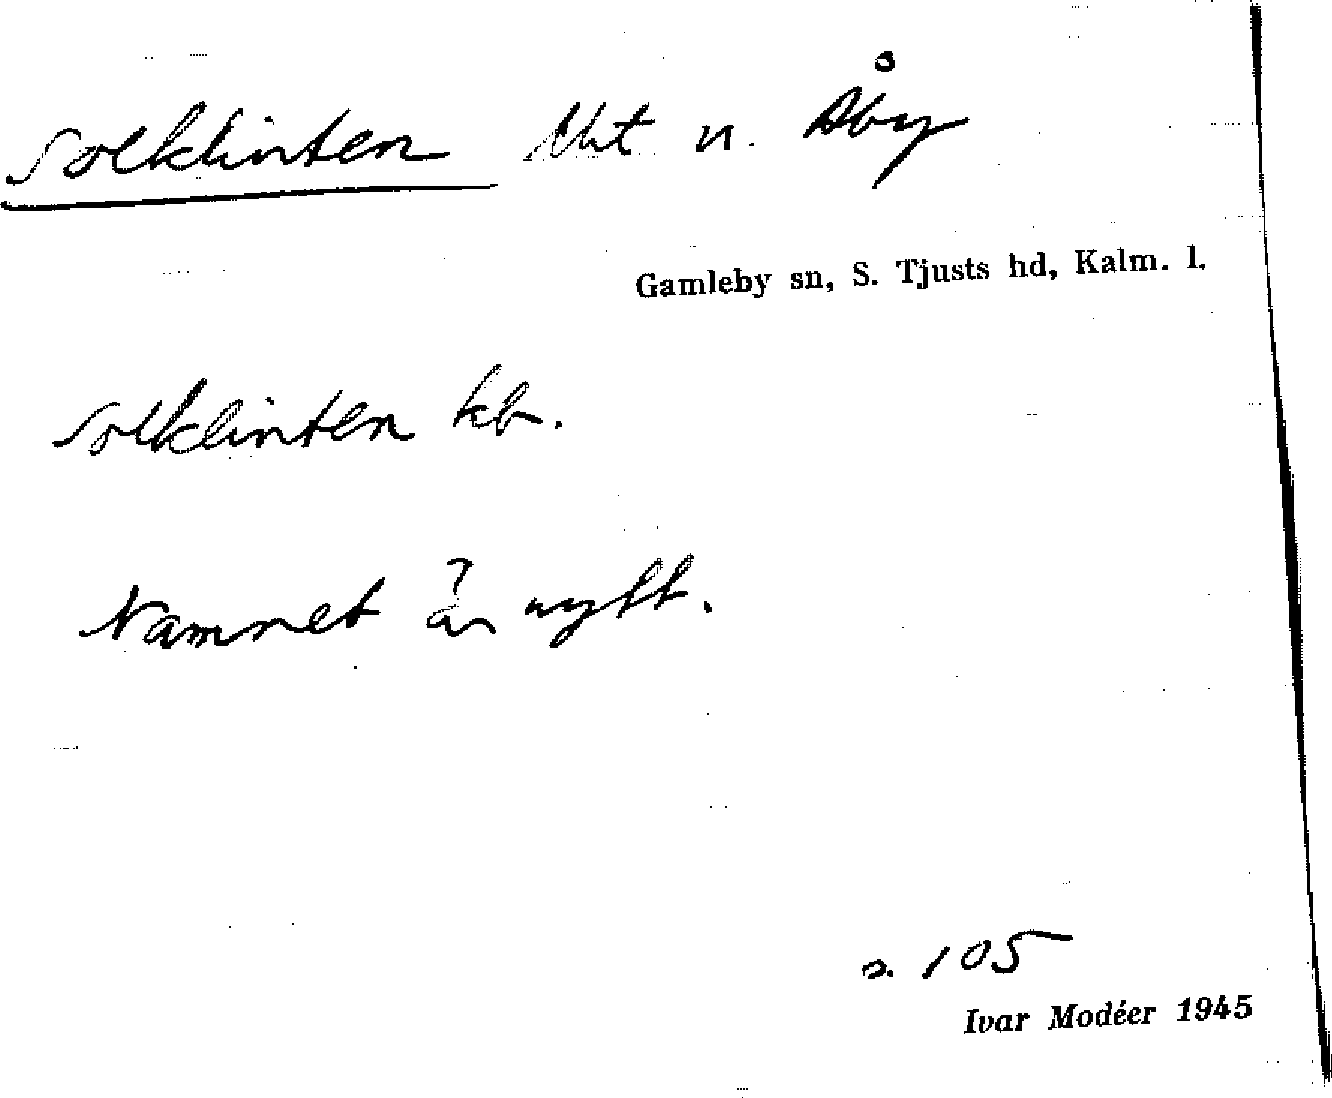 Solklinten lht u. Åby
Gamleby sn, S. Tjusts hd, Kalm. l.
Solklinten kb.
Namnet är nytt.
s. 105
Ivar Modéer 1945